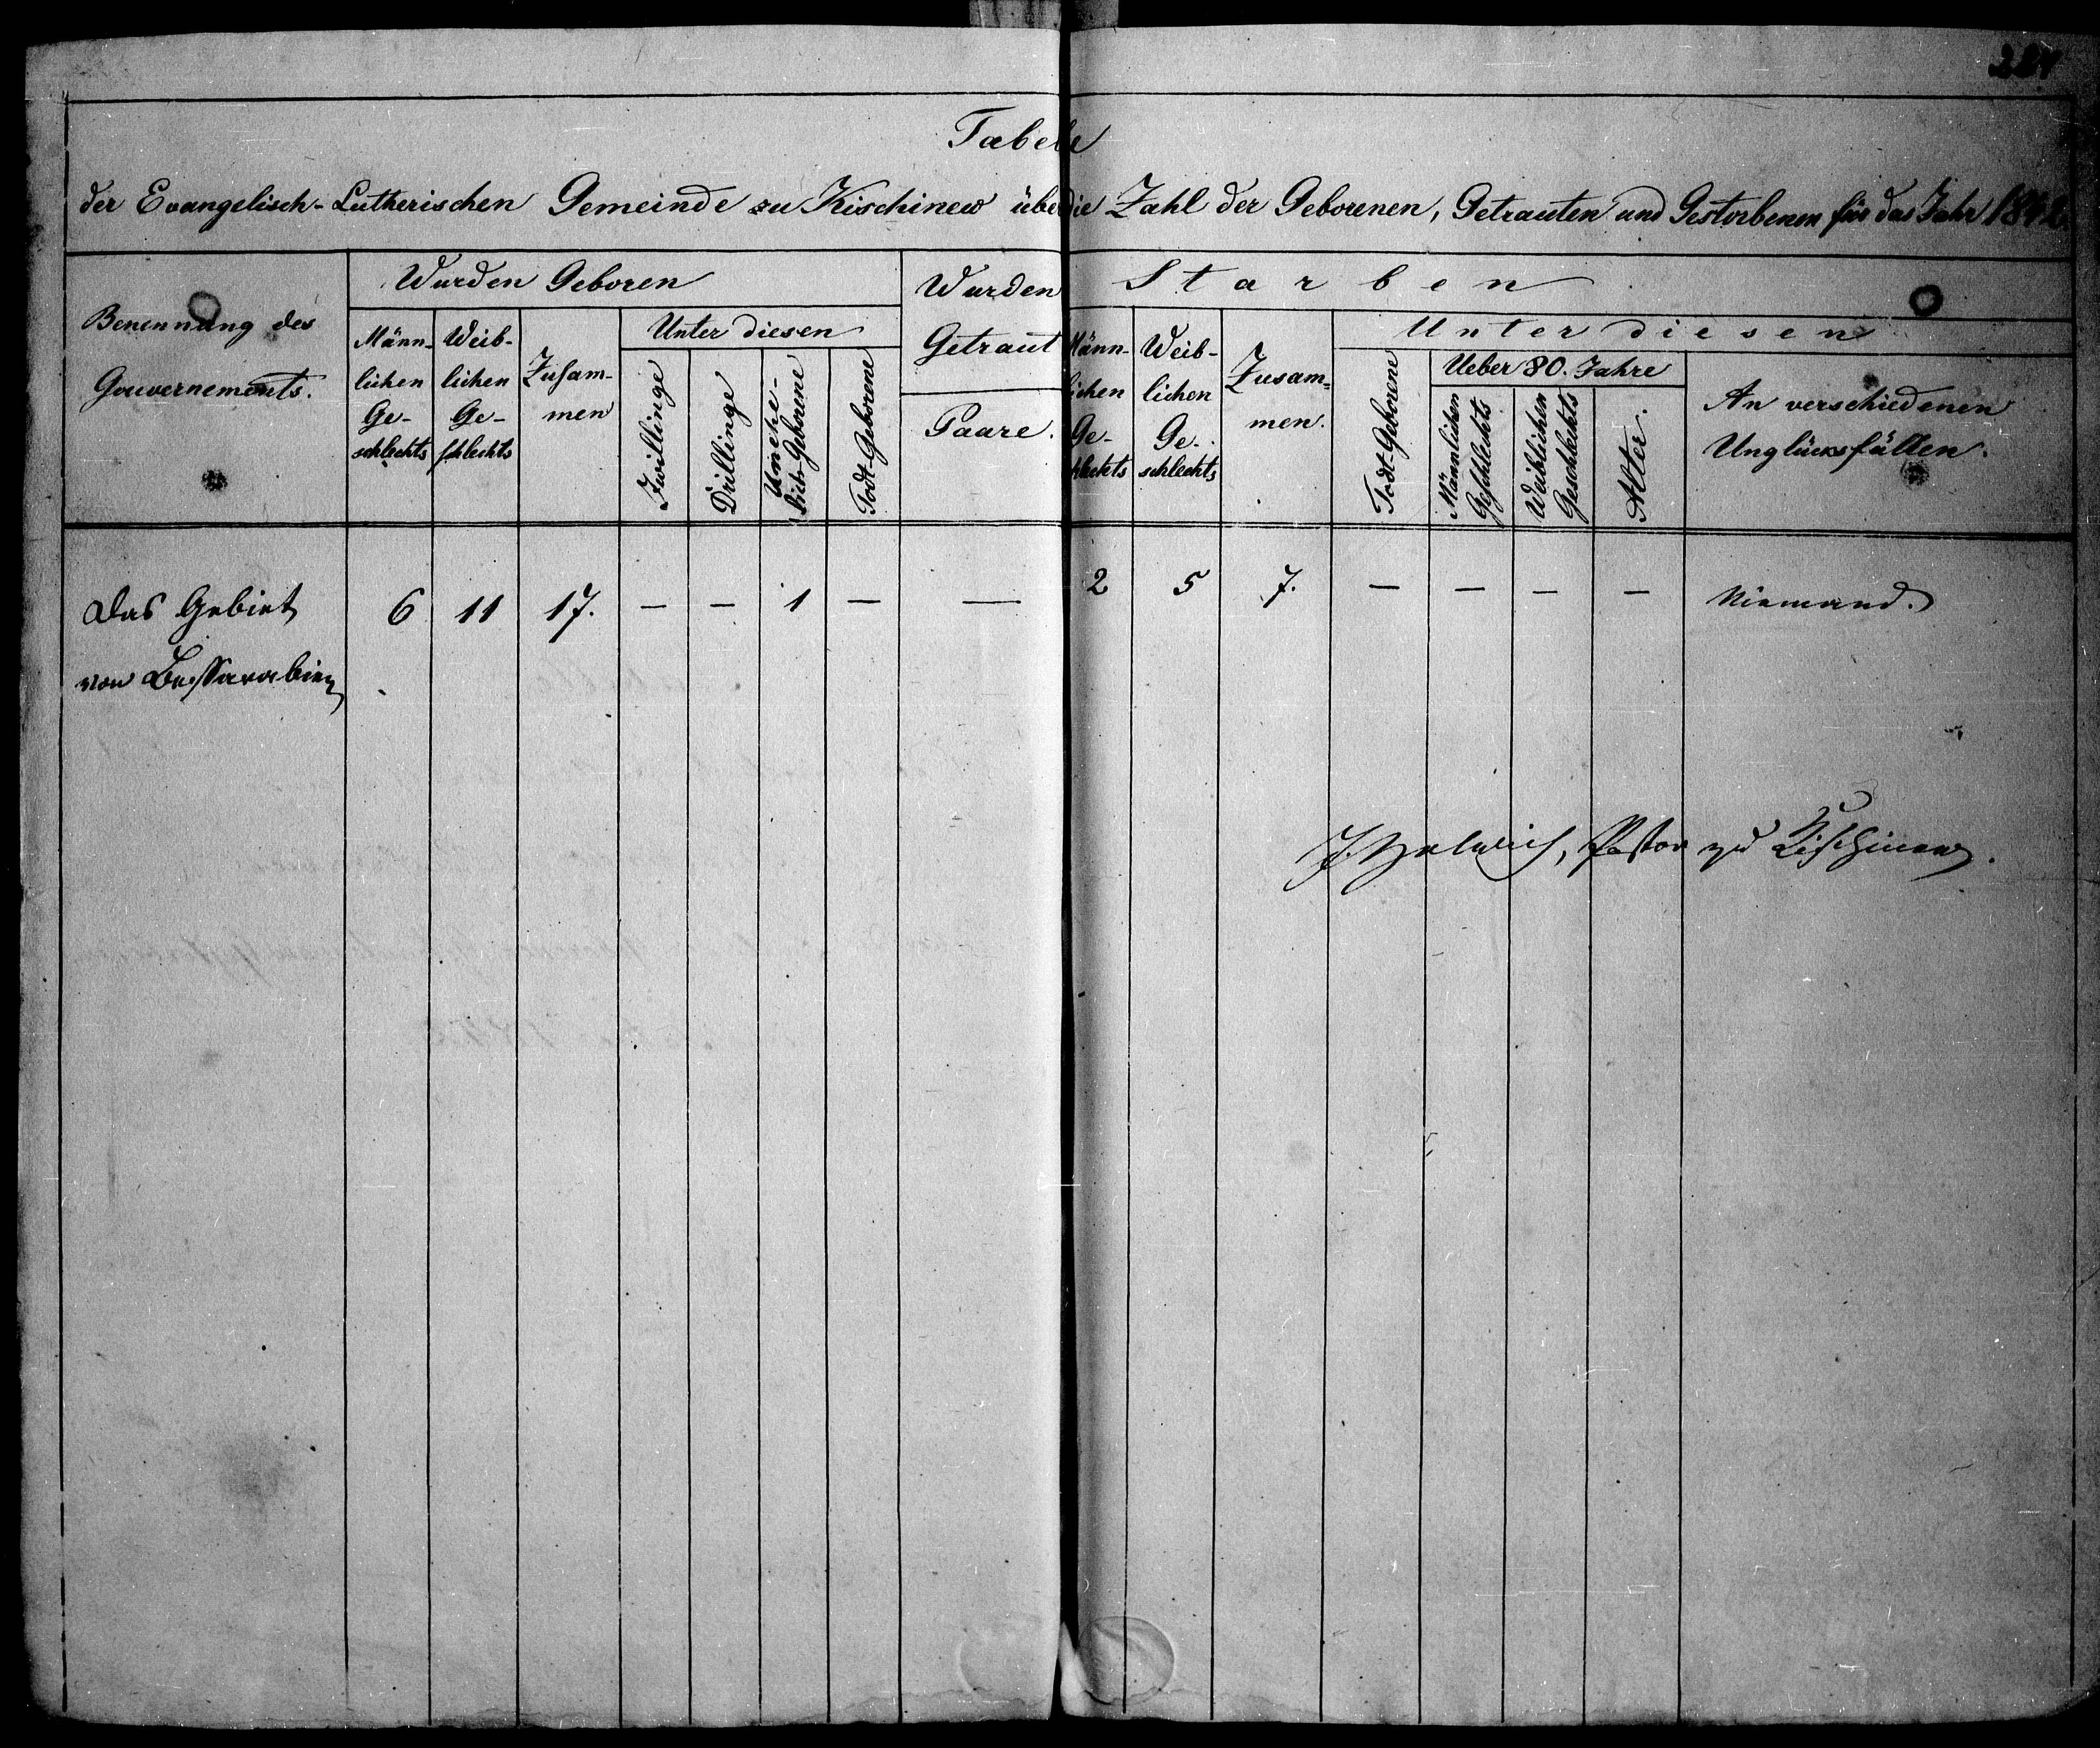 Tabelle
der Evangelisch-Lutherischen Gemeinde zu Kischinew über die Zahl der Geborenen, Getrauten und Gestorbenen für das Jahr 1842.
Benennung des
Gouvernements.
Wurden Geboren
Männ-
lichen
Ge-
schlechts
Weib-
lichen
Ge-
schlechts
Zusam-
men
Unter diesen
Zwillinge
Drillinge
Unehe-
lich-Geborene
Todt-Geborene
Wurden
Getraut
Paare.
Starben
Männ-
lichen
Ge-
schlechts
Weib-
lichen
Ge-
schlechts
Zusam-
men.
Unter diesen
Todt-Geborene
Ueber 80. Jahre
Männlichen
Geschlechts
Weiblichen
Geschlechts
Alter.
An verschiedenen
Unglücksfällen.
Das Gebiet 6 11 17. — — 1 — — 2 5 7. — — — — Niemand.
von Bessarabien
Pastor zu Kischinew.